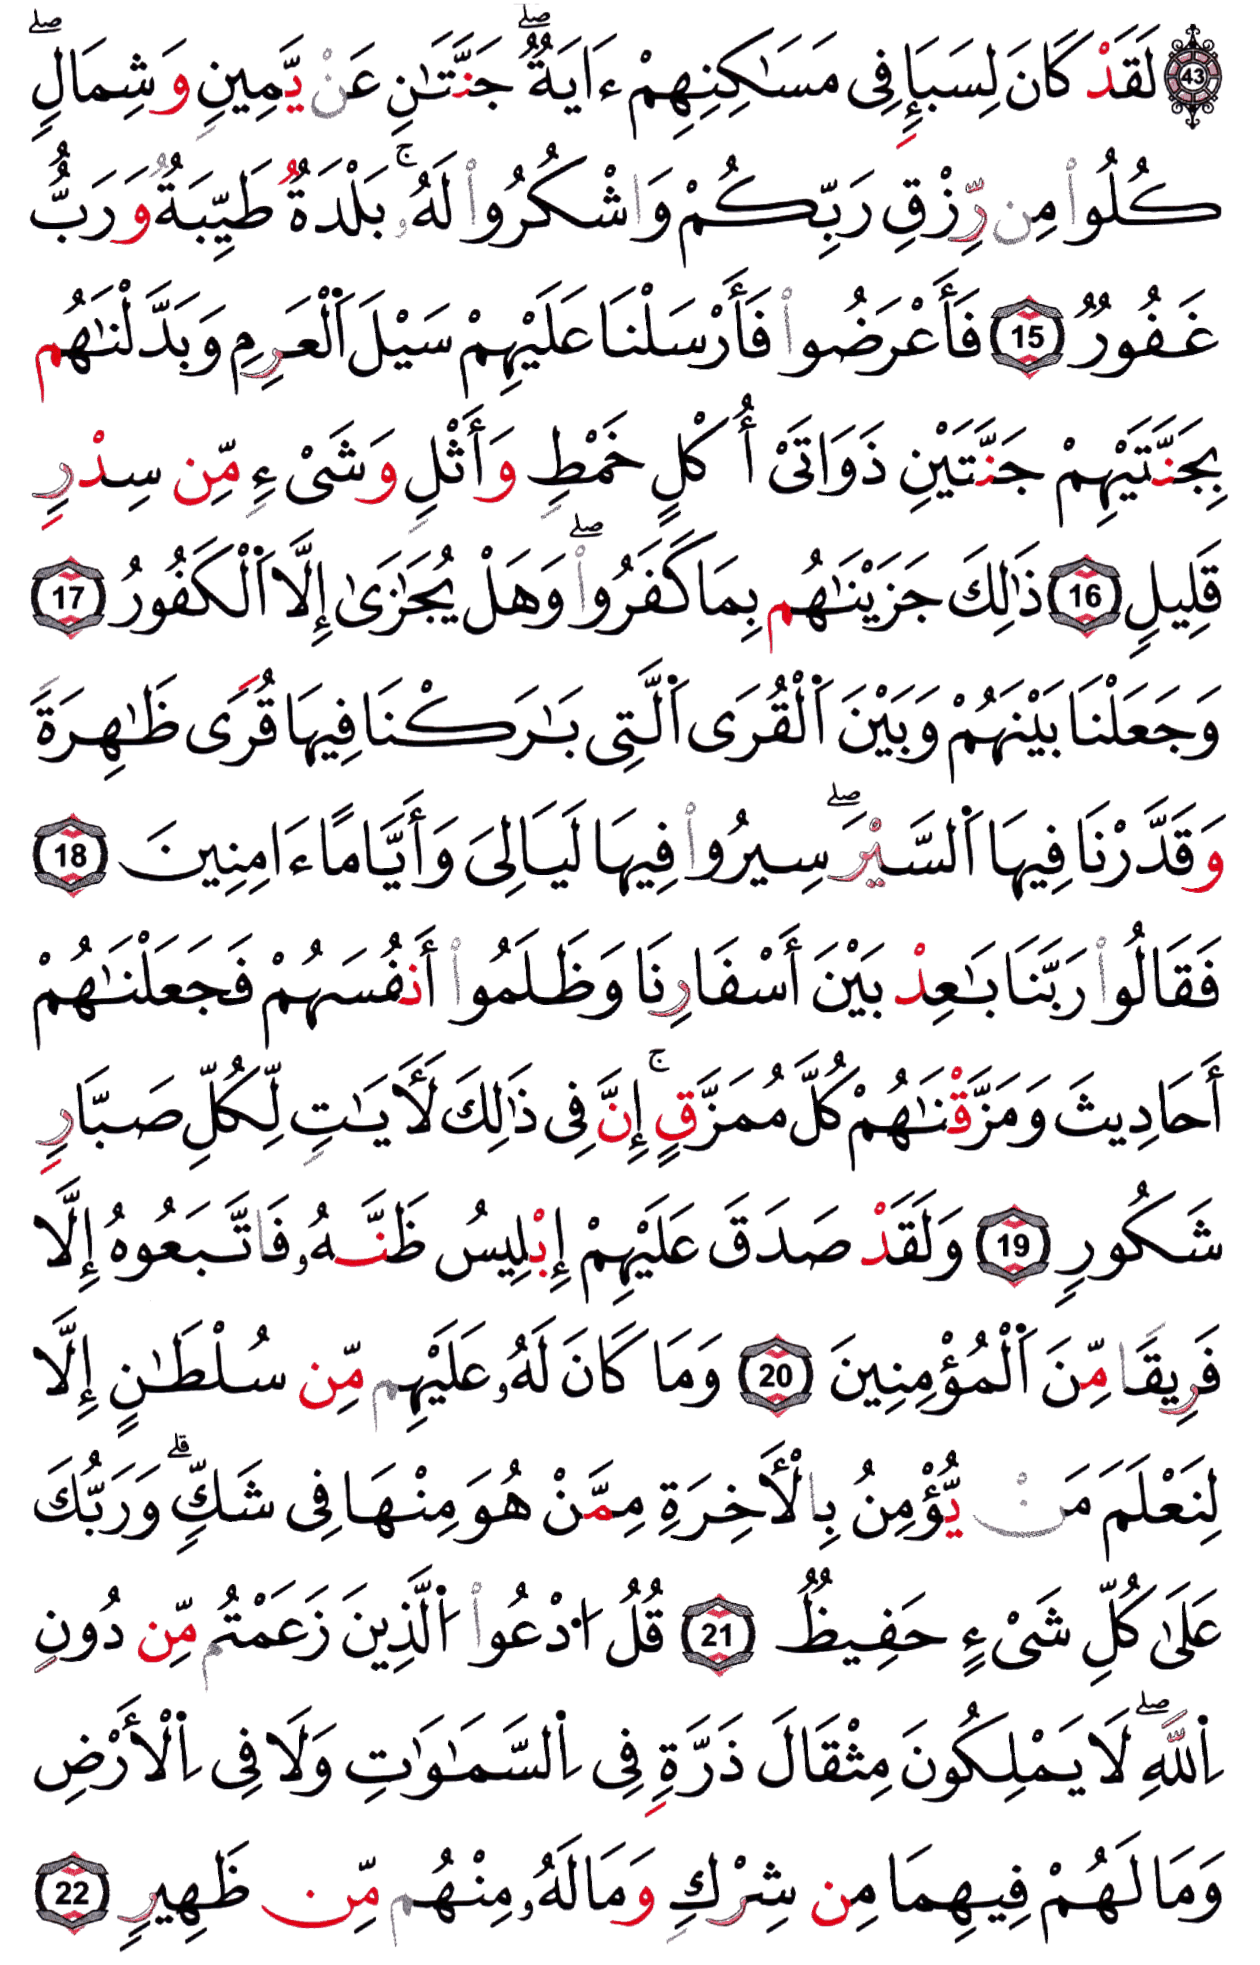 43 لَقَدْ كَانَ لِسَبَإٍ فِى مَسَٰكِنِهِمْ ءَايَةٌ ۖ جَنَّتَٰنِ عَنْ يَّمِينٍ وَشِمَالٍ ۖ
كُلُوا۟ مِن رِّزْقِ رَبِّكُمْ وَاشْكُرُوا۟ لَهُۥ ۚ بَلْدَةٌ طَيِّبَةٌ وَرَبٌّ
غَفُورٌ 15 فَأَعْرَضُوا۟ فَأَرْسَلْنَا عَلَيْهِمْ سَيْلَ اَ۬لْعَرِمِ وَبَدَّلْنَٰهُم
بِجَنَّتَيْهِمْ جَنَّتَيْنِ ذَوَاتَىْ أُكْلٍ خَمْطٍ وَأَثْلٍ وَشَىْءٍ مِّن سِدْرٍ
قَلِيلٍ 16 ذَٰلِكَ جَزَيْنَٰهُم بِمَا كَفَرُوا۟ ۖ وَهَلْ يُجَٰزَىٰ إِلَّا اَ۬لْكَفُورُ 17
وَجَعَلْنَا بَيْنَهُمْ وَبَيْنَ اَ۬لْقُرَى اَ۬لَّتِى بَٰرَكْنَا فِيهَا قُرًى ظَٰهِرَةً
وَقَدَّرْنَا فِيهَا اَ۬لسَّيْرَ ۖ سِيرُوا۟ فِيهَا لَيَالِىَ وَأَيَّامًا ءَامِنِينَ 18
فَقَالُوا۟ رَبَّنَا بَٰعِدْ بَيْنَ أَسْفَارِنَا وَظَلَمُوا۟ أَنفُسَهُمْ فَجَعَلْنَٰهُمْ
أَحَادِيثَ وَمَزَّقْنَٰهُمْ كُلَّ مُمَزَّقٍ ۚ إِنَّ فِى ذَٰلِكَ لَأَيَٰتٍ لِّكُلِّ صَبَّارٍ
شَكُورٍ 19 وَلَقَدْ صَدَقَ عَلَيْهِمْ إِبْلِيسُ ظَنَّهُۥ فَاتَّبَعُوهُ إِلَّا
فَرِيقًا مِّنَ اَ۬لْمُؤْمِنِينَ 20 وَمَا كَانَ لَهُۥ عَلَيْهِم مِّن سُلْطَٰنٍ إِلَّا
لِنَعْلَمَ مَنْ يُّؤْمِنُ بِالْأَخِرَةِ مِمَّنْ هُوَ مِنْهَا فِى شَكٍّ ۗ وَرَبُّكَ
عَلَىٰ كُلِّ شَىْءٍ حَفِيظٌ 21 قُلُ ا۟دْعُوا۟ اُ۬لَّذِينَ زَعَمْتُم مِّن دُونِ
اِ۬للَّهِ ۖ لَا يَمْلِكُونَ مِثْقَالَ ذَرَّةٍ فِى اِ۬لسَّمَٰوَٰتِ وَلَا فِى اِ۬لْأَرْضِ
وَمَا لَهُمْ فِيهِمَا مِن شِرْكٍ وَمَا لَهُۥ مِنْهُم مِّن ظَهِيرٍ 22